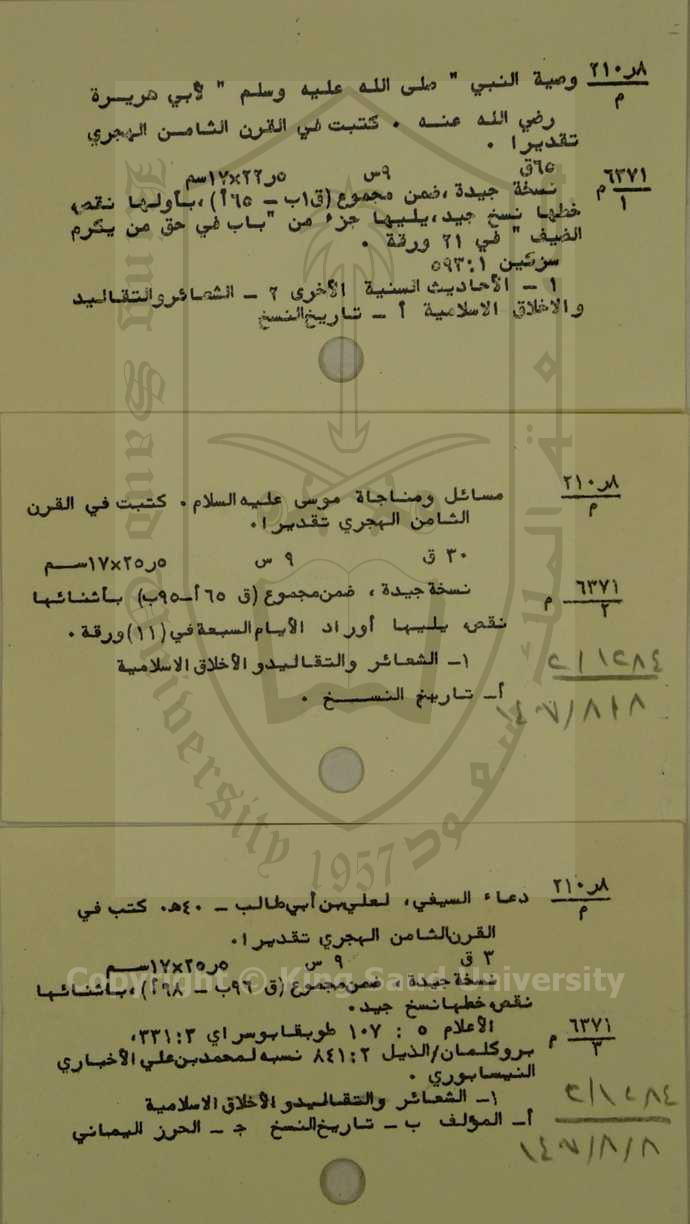 ٢١٠٫٨
م
وصية النبي " صلى الله عليه وسلم " لأبي هريرة
رضي الله عنه . كتبت في القرن الثامن الهجري
تقديرا .
٦٥ق ٩س ٢٢٫٥×١٧سم
٦٣٧١
١
م
نسخة جيدة ، ضمن مجموع (ق١ب - ٦٥أ) ، بأولها نقص
خطها نسخ جيد ، يليها جزء من "باب في حق من يكرم
الضيف" في ٢١ ورقة .
سزكين ٥٩٣:١
١ - الأحاديث السنية الأخرى ٢ - الشعائر والتقاليد
والاخلاق الاسلامية أ - تاريخ النسخ
٢١٠٫٨
م
مسائل ومناجاة موسى عليه السلام . كتبت في القرن
الثامن الهجري تقديرا .
٣٠ ق ٩ س ٢٥٫٥×١٧ســم
٦٣٧١
٢
م
نسخة جيدة ، ضمن مجموع (ق ٦٥أ-٩٥ب) بأثنائها
نقص يليها أوراد الأيام السبعة في (١١) ورقة .
١- الشعائر والتقاليد والأخلاق الاسلامية
أ- تاريخ النســـخ .
٢١٠٫٨
م
دعاء السيفي ، لعلي بن أبي طالب - ٤٠هـ . كتب في
القرن الثامن الهجري تقديرا .
٣ ق ٩ س ٢٥٫٥×١٧ســم
نسخة جيدة ، ضمن مجموع (ق ٩٦ب - ٩٨أ) ، بأثنائها
نقص ، خطها نسخ جيد .
٦٣٧١
٣
م
الأعلام ٥ : ١٠٧ طوبقابوسراي ٣٣١:٣ ،
بروكلمان/الذيل ٨٤١:٢ نسبه لمحمد بن علي الأخباري
النيسابوري .
١- الشعائر والتقاليد والأخلاق الاسلامية
أ- المؤلف ب - تاريخ النسخ ج - الحرز اليماني
King Saud University
1957
Copyright © King Saud University